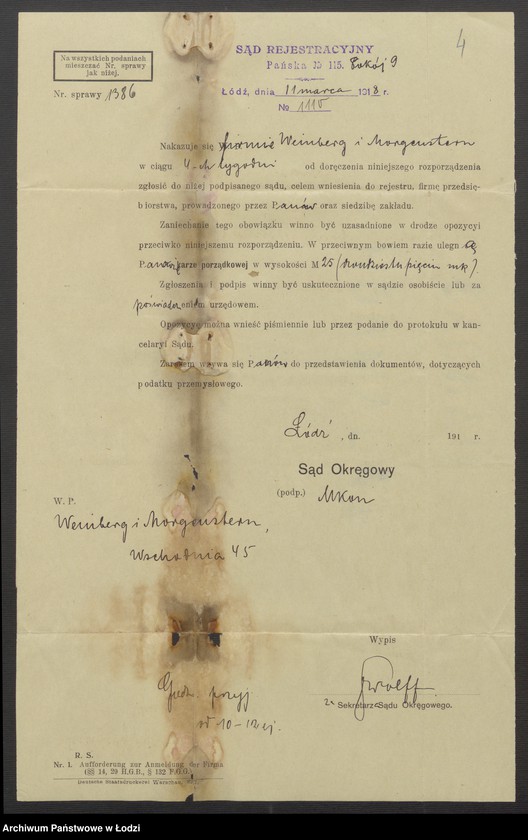 4
Na wszystkich podaniach
mieszczać Nr. sprawy
jak niżej.
Nr. sprawy 1386
SĄD REJESTRACYJNY
Pańska № 115. Pokój 9
Łódź, dnia 11 marca 1918 r.
№ 1115
Nakazuje się firmie Weinberg i Morgenstern
w ciągu 4-ch tygodni od doręczenia niniejszego rozporządzenia
zgłosić do niżej podpisanego sądu, celem wniesienia do rejestru, firmę przedsię-
biorstwa, prowadzonego przez Panów oraz siedzibę zakładu.
Zaniechanie tego obowiązku winno być uzasadnione w drodze opozycyi
przeciwko niniejszemu rozporządzeniu. W przeciwnym bowiem razie ulegną
Panowie karze porządkowej w wysokości M 25 (dwudziestu pięciu mk).
Zgłoszenia i podpis winny być uskutecznione w sądzie osobiście lub za
poświadczeniem urzędowem.
Opozycyę można wnieść piśmiennie lub przez podanie do protokułu w kan-
celaryi Sądu.
Zarazem wzywa się Panów do przedstawienia dokumentów, dotyczących
podatku przemysłowego.
Łódź, dn. 191 r.
Sąd Okręgowy
(podp.) MKon
W. P.
Weinberg i Morgenstern,
Wschodnia 45
Wypis
Godz. przyj
od 10-12 ej.
Sekretarz Sądu Okręgowego.
R. S.
Nr. 1. Aufforderung zur Anmeldung der Firma
(§§ 14, 29 H.G.B., § 132 F.G.G.)
Deutsche Staatsdruckerei Warschau.
Archiwum Państwowe w Łodzi